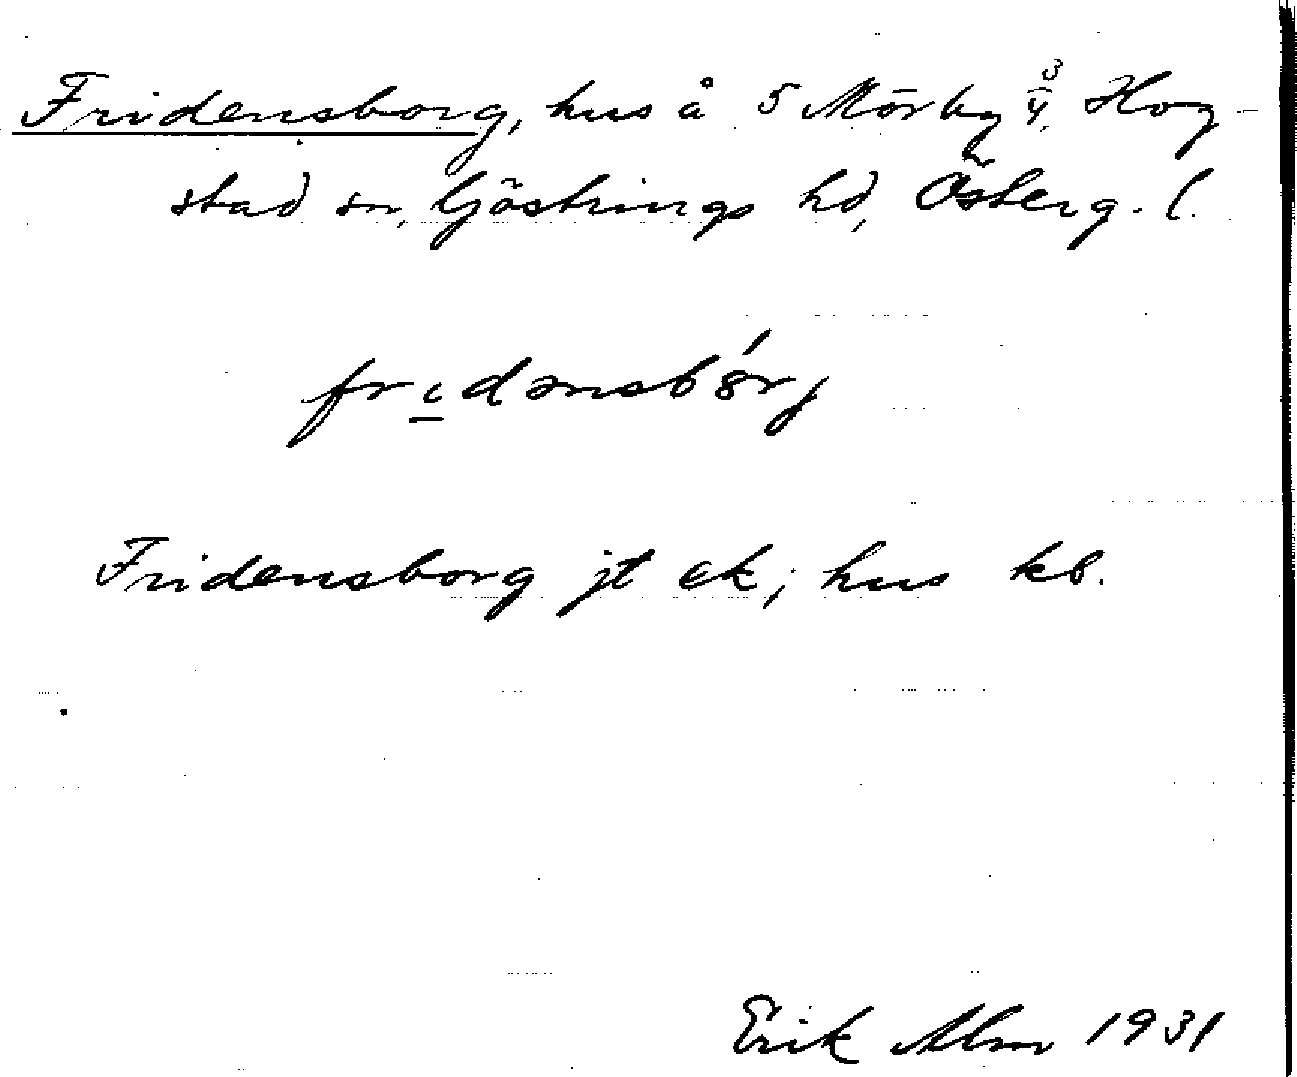 Fridensborg, hus å 5 Mörby 3/4, Hog-
stad sn, Göstrings hd, Österg. l.
fridənsbórj
Fridensborg jt ek; hus kb.
Erik Alm 1931